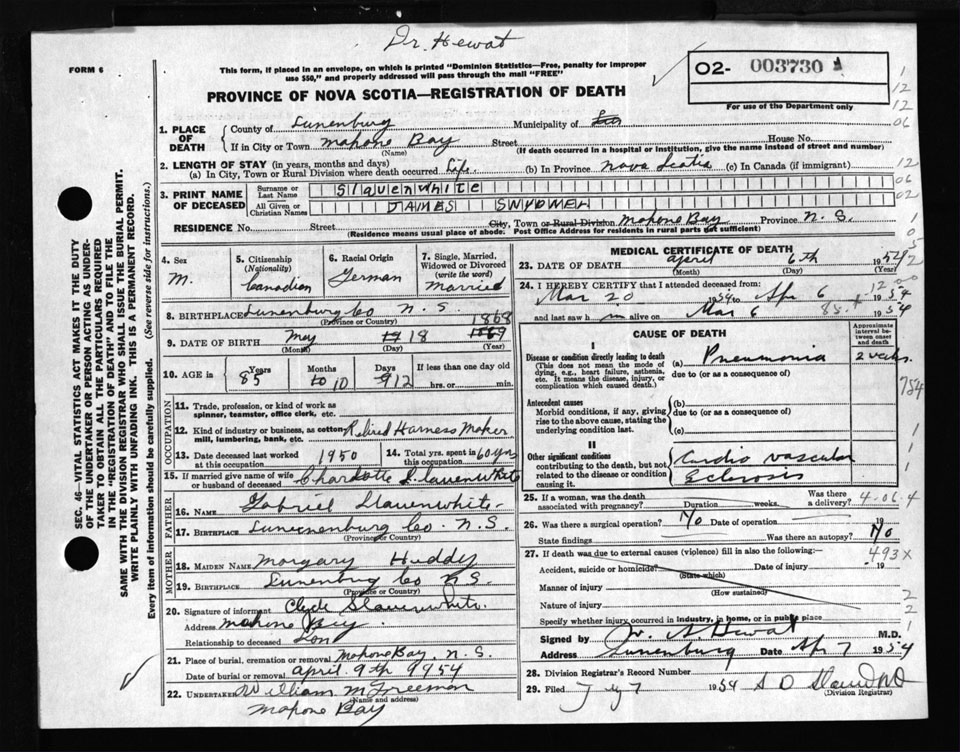 Dr. Hewat
FORM 6
This form, if placed in an envelope, on which is printed "Dominion Statistics—Free, penalty for improper
use $50," and properly addressed will pass through the mail "FREE"
PROVINCE OF NOVA SCOTIA—REGISTRATION OF DEATH
02- 003730
For use of the Department only
1
12
12
06
12
06
02
SEC. 46—VITAL STATISTICS ACT MAKES IT THE DUTY
OF THE UNDERTAKER OR PERSON ACTING AS UNDER-
TAKER TO OBTAIN ALL THE PARTICULARS REQUIRED
IN THE "REGISTRATION OF DEATH" AND TO FILE THE
SAME WITH THE DIVISION REGISTRAR WHO SHALL ISSUE THE BURIAL PERMIT.
WRITE PLAINLY WITH UNFADING INK. THIS IS A PERMANENT RECORD.
Every item of information should be carefully supplied. (See reverse side for instructions.)
1. PLACE OF DEATH
County of Lunenburg Municipality of
If in City or Town Mahone Bay Street House No.
(Name) (If death occurred in a hospital or institution, give the name instead of street and number)
2. LENGTH OF STAY (in years, months and days)
(a) In City, Town or Rural Division where death occurred Life (b) In Province Nova Scotia (c) In Canada (if immigrant)
3. PRINT NAME OF DECEASED
Surname or Last Name Slauenwhite
All Given or Christian Names JAMES
RESIDENCE No. Street City, Town or Rural Division Mahone Bay Province N. S.
(Residence means usual place of abode. Post Office Address for residents in rural parts not sufficient)
4. Sex M.
5. Citizenship (Nationality) Canadian
6. Racial Origin German
7. Single, Married, Widowed or Divorced (write the word) Married
8. BIRTHPLACE Lunenburg Co N. S.
(Province or Country)
1868
9. DATE OF BIRTH May 17 18 1869
(Month) (Day) (Year)
10. AGE in Years 85 Months 10 Days 12 If less than one day
hrs. or min.
OCCUPATION
11. Trade, profession, or kind of work as
spinner, teamster, office clerk, etc.
12. Kind of industry or business, as cotton mill, lumbering, bank, etc. Retired Harness Maker
13. Date deceased last worked at this occupation 1950
14. Total yrs. spent in this occupation 60 yrs
15. If married give name of wife or husband of deceased Charlotte Slauenwhite
FATHER
16. Name Gabriel Slauenwhite
17. Birthplace Lunenburg Co. N. S.
(Province or Country)
MOTHER
18. MAIDEN NAME Morgary
19. BIRTHPLACE Lunenburg Co N S.
(Province or Country)
20. Signature of informant Clyde Slauenwhite.
Address Mahone Bay.
Relationship to deceased Son
21. Place of burial, cremation or removal Mahone Bay, N. S.
Date of burial or removal april 9th 1954
22. UNDERTAKER William M Freeman
(Name and address)
Mahone Bay
MEDICAL CERTIFICATE OF DEATH
23. DATE OF DEATH April 6th 1954
(Month) (Day) (Year)
24. I HEREBY CERTIFY that I attended deceased from:
Mar 20 1954 to Apr 6 1954
and last saw h m alive on Mar 6 1954
CAUSE OF DEATH
Approximate interval between onset and death
I
Disease or condition directly leading to death (a) Pneumonia 2 weeks.
(This does not mean the mode of dying, e.g., heart failure, asthenia, etc. It means the disease, injury, or complication which caused death.)
due to (or as a consequence of)
Antecedent causes
Morbid conditions, if any, giving rise to the above cause, stating the underlying condition last.
(b)
due to (or as a consequence of)
(c)
II
Other significant conditions
contributing to the death, but not related to the disease or condition causing it.
Cardio vascular
Sclerosis
754
25. If a woman, was the death associated with pregnancy? Duration weeks Was there a delivery? 4-06.4
26. Was there a surgical operation? No Date of operation 19
State findings Was there an autopsy? No
27. If death was due to external causes (violence) fill in also the following:— 493X
Accident, suicide or homicide? Date of injury 19
(State which)
Manner of injury
(How sustained)
Nature of injury
Specify whether injury occurred in industry, in home, or in public place
Signed by W. A Hewat M.D.
Address Lunenburg Date Apr 7 1954
28. Division Registrar's Record Number
29. Filed 7 1954
(Division Registrar)